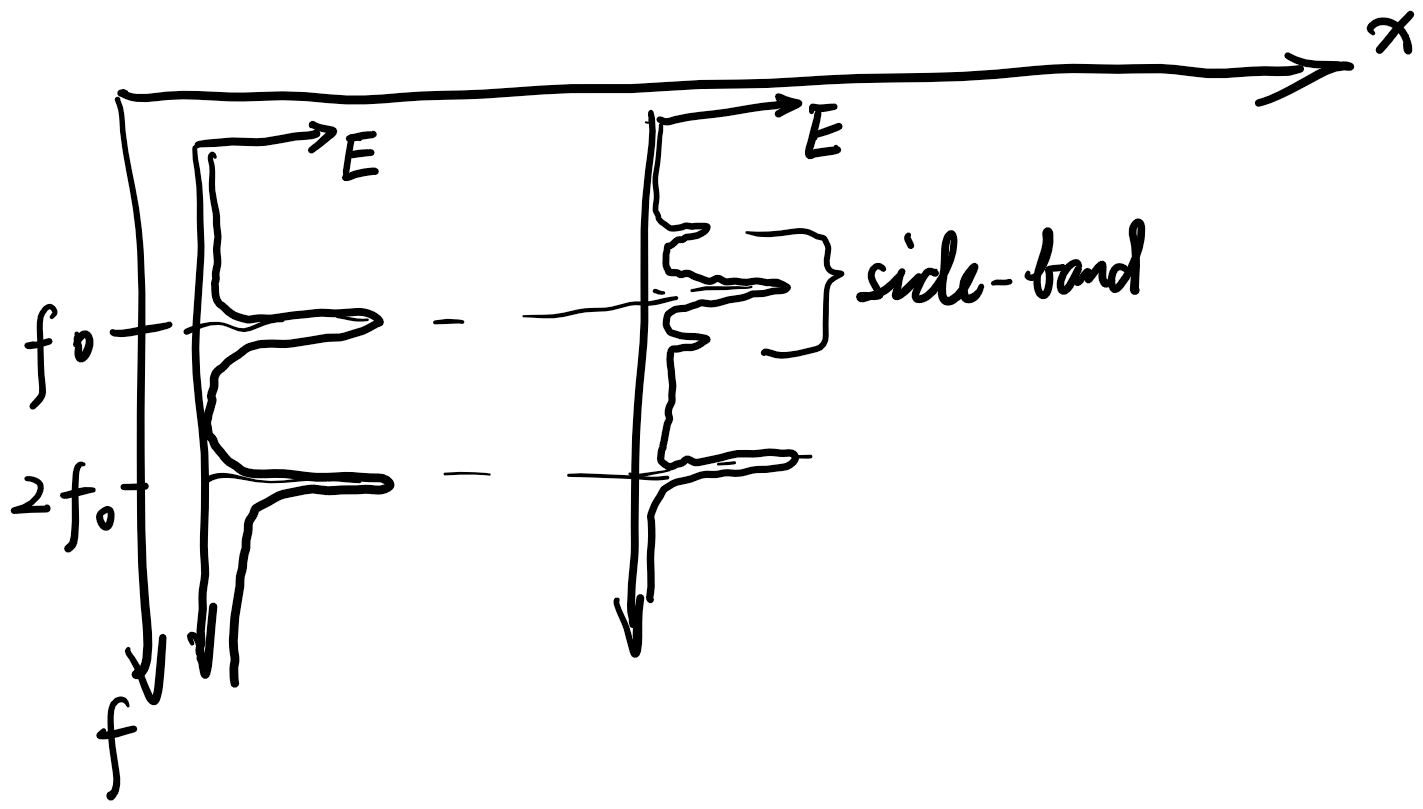 x
E
E
side-band
f0
2f0
f